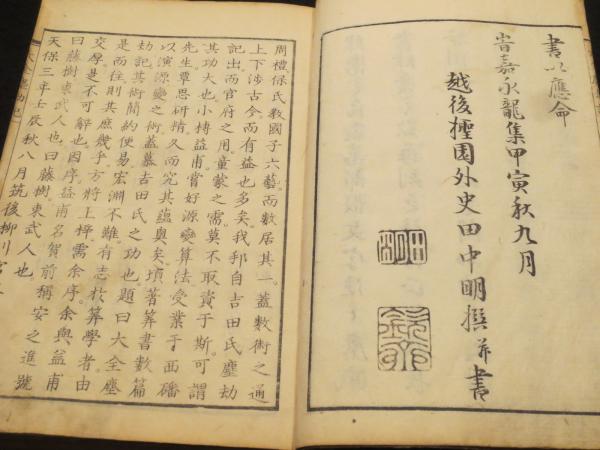 書以應命
嘉永龍集甲寅秋九月
越後
園外史田中明撰并書
周禮保氏敎國子六藝而數居其一蓋數術之通
上下涉古今而有益也多矣我邦自吉田氏塵劫
記出而官府之用童蒙之需莫不取資于斯可謂
其功大也小榑益甫嘗好源變算法受業于西磻
先生覃思研精久而究其蘊奧矣頃著筭書數篇
以演源變之術蓋慕吉田氏之功也題曰大全塵
劫記其術簡約使易宏淵不難有志於筭學者由
是而往則其庶幾乎方將上梓需余序余與益甫
交厚是不可辭也因序益甫名賀前稱安之進號
曰藤樹東武人也曰藤樹東武人也
天保三年壬辰秋八月筑後柳川